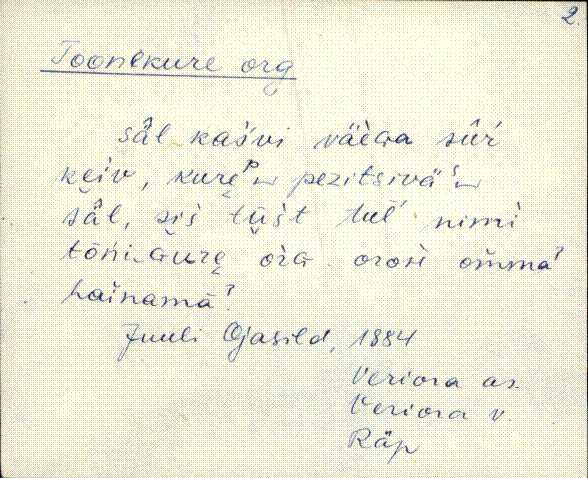 2.
Toonekure org
sâl kaśvi väèGa sûŕ
keiv, kure pezitsivä
sâl, sis tüśt tuĺ nimi
tôńiGure oŕG. orosi omma
hainamā?
Juuli Ojasild, 1884
Veriora as.
Veriora v.
Räp